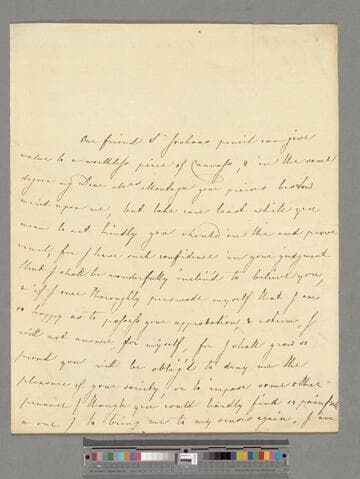 Our friend Sr Joshuas pencil can give
value to a worthless piece of Canvass, & in the same
degree my Dear Mrs Montagu your praises bestow
merit upon me, but take care least while you
mean to act kindly you should in the end prove
cruel, for I have such confidence in your judgment
that I shall be wonderfully inclind to believe you,
& if I once thoroughly persuade myself that I am
so happy as to possess your approbation & esteem, I
will not answer for myself, for I shall grow so
proud you will be oblig'd to deny me the
pleasure of your society, or to impose some other
penance I though you could hardly find so painful
a one I to bring me to my senses again. I am